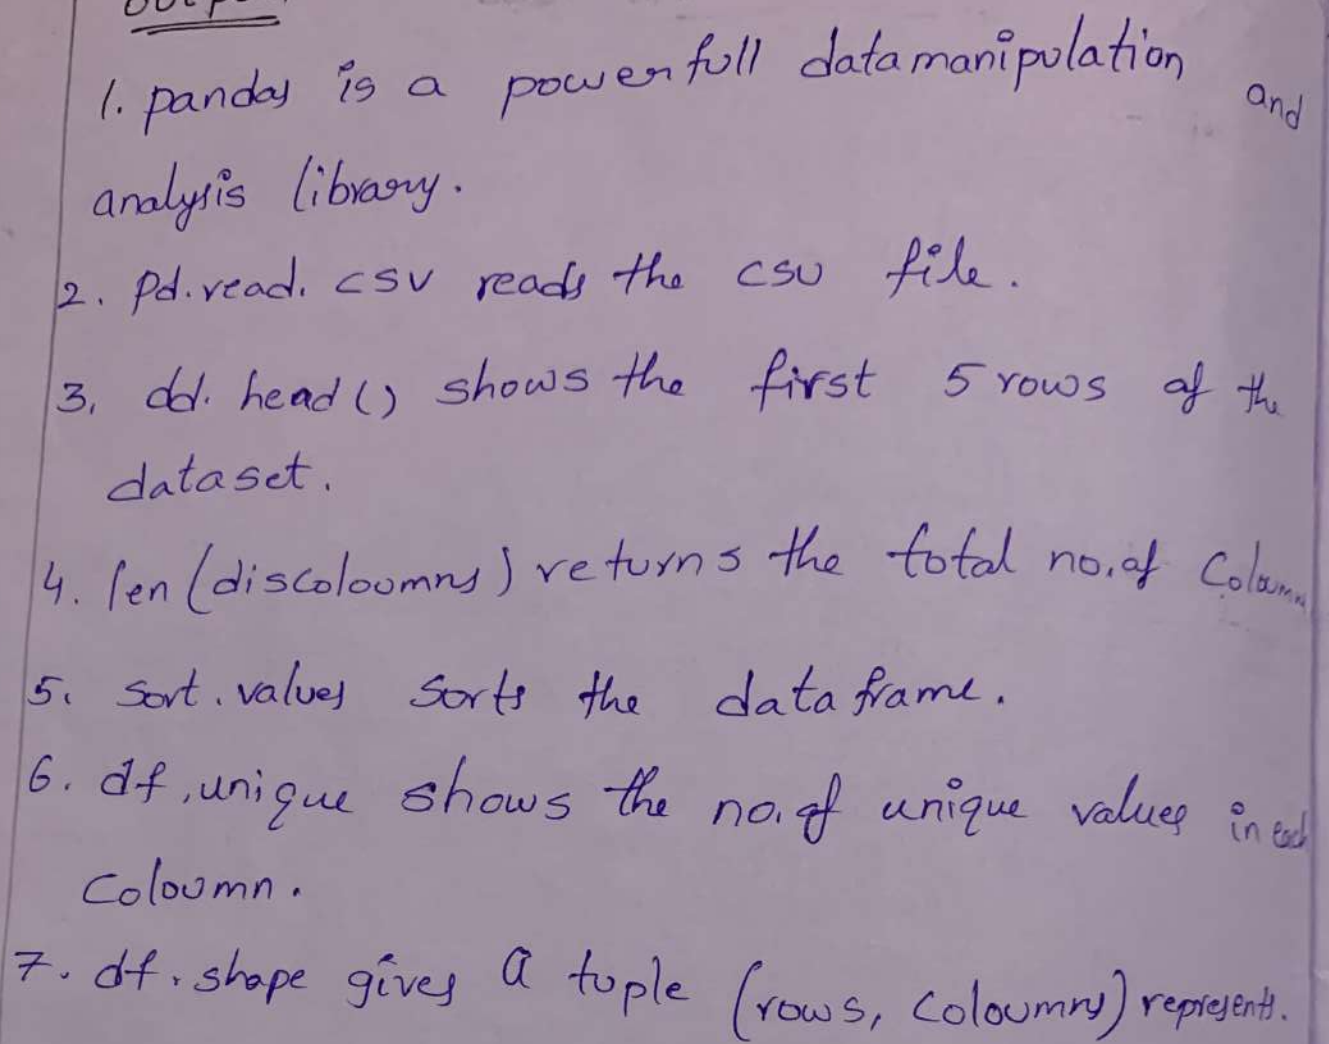 1. pandas is a powerfull datamanipulation and
analysis library.
2. Pd.read. csv reads the csv file.
3, dd. head () shows the first 5 rows of the
dataset.
4. len (discoloumns) returns the total no.of Coloumns
5. sort. values sorts the data frame.
6. df .unique shows the no.of unique values in each
Coloumn.
7. df. shape gives a tuple (rows, Coloumns) represents.